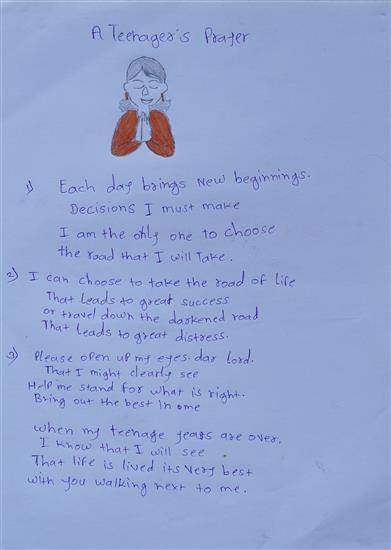 A Teenager's Prayer
1) Each day brings New beginnings.
Decisions I must make
I am the only one to choose
the road that I will take.
2) I can choose to take the road of life
That leads to great success
or travel down the darkened road
That leads to great distress.
3) Please open up my eyes. dar lord.
That I might clearly see
Help me stand for what is right.
Bring out the best in me
when my teenage years are over.
I know that I will see
That life is lived its very best
with you walking next to me.